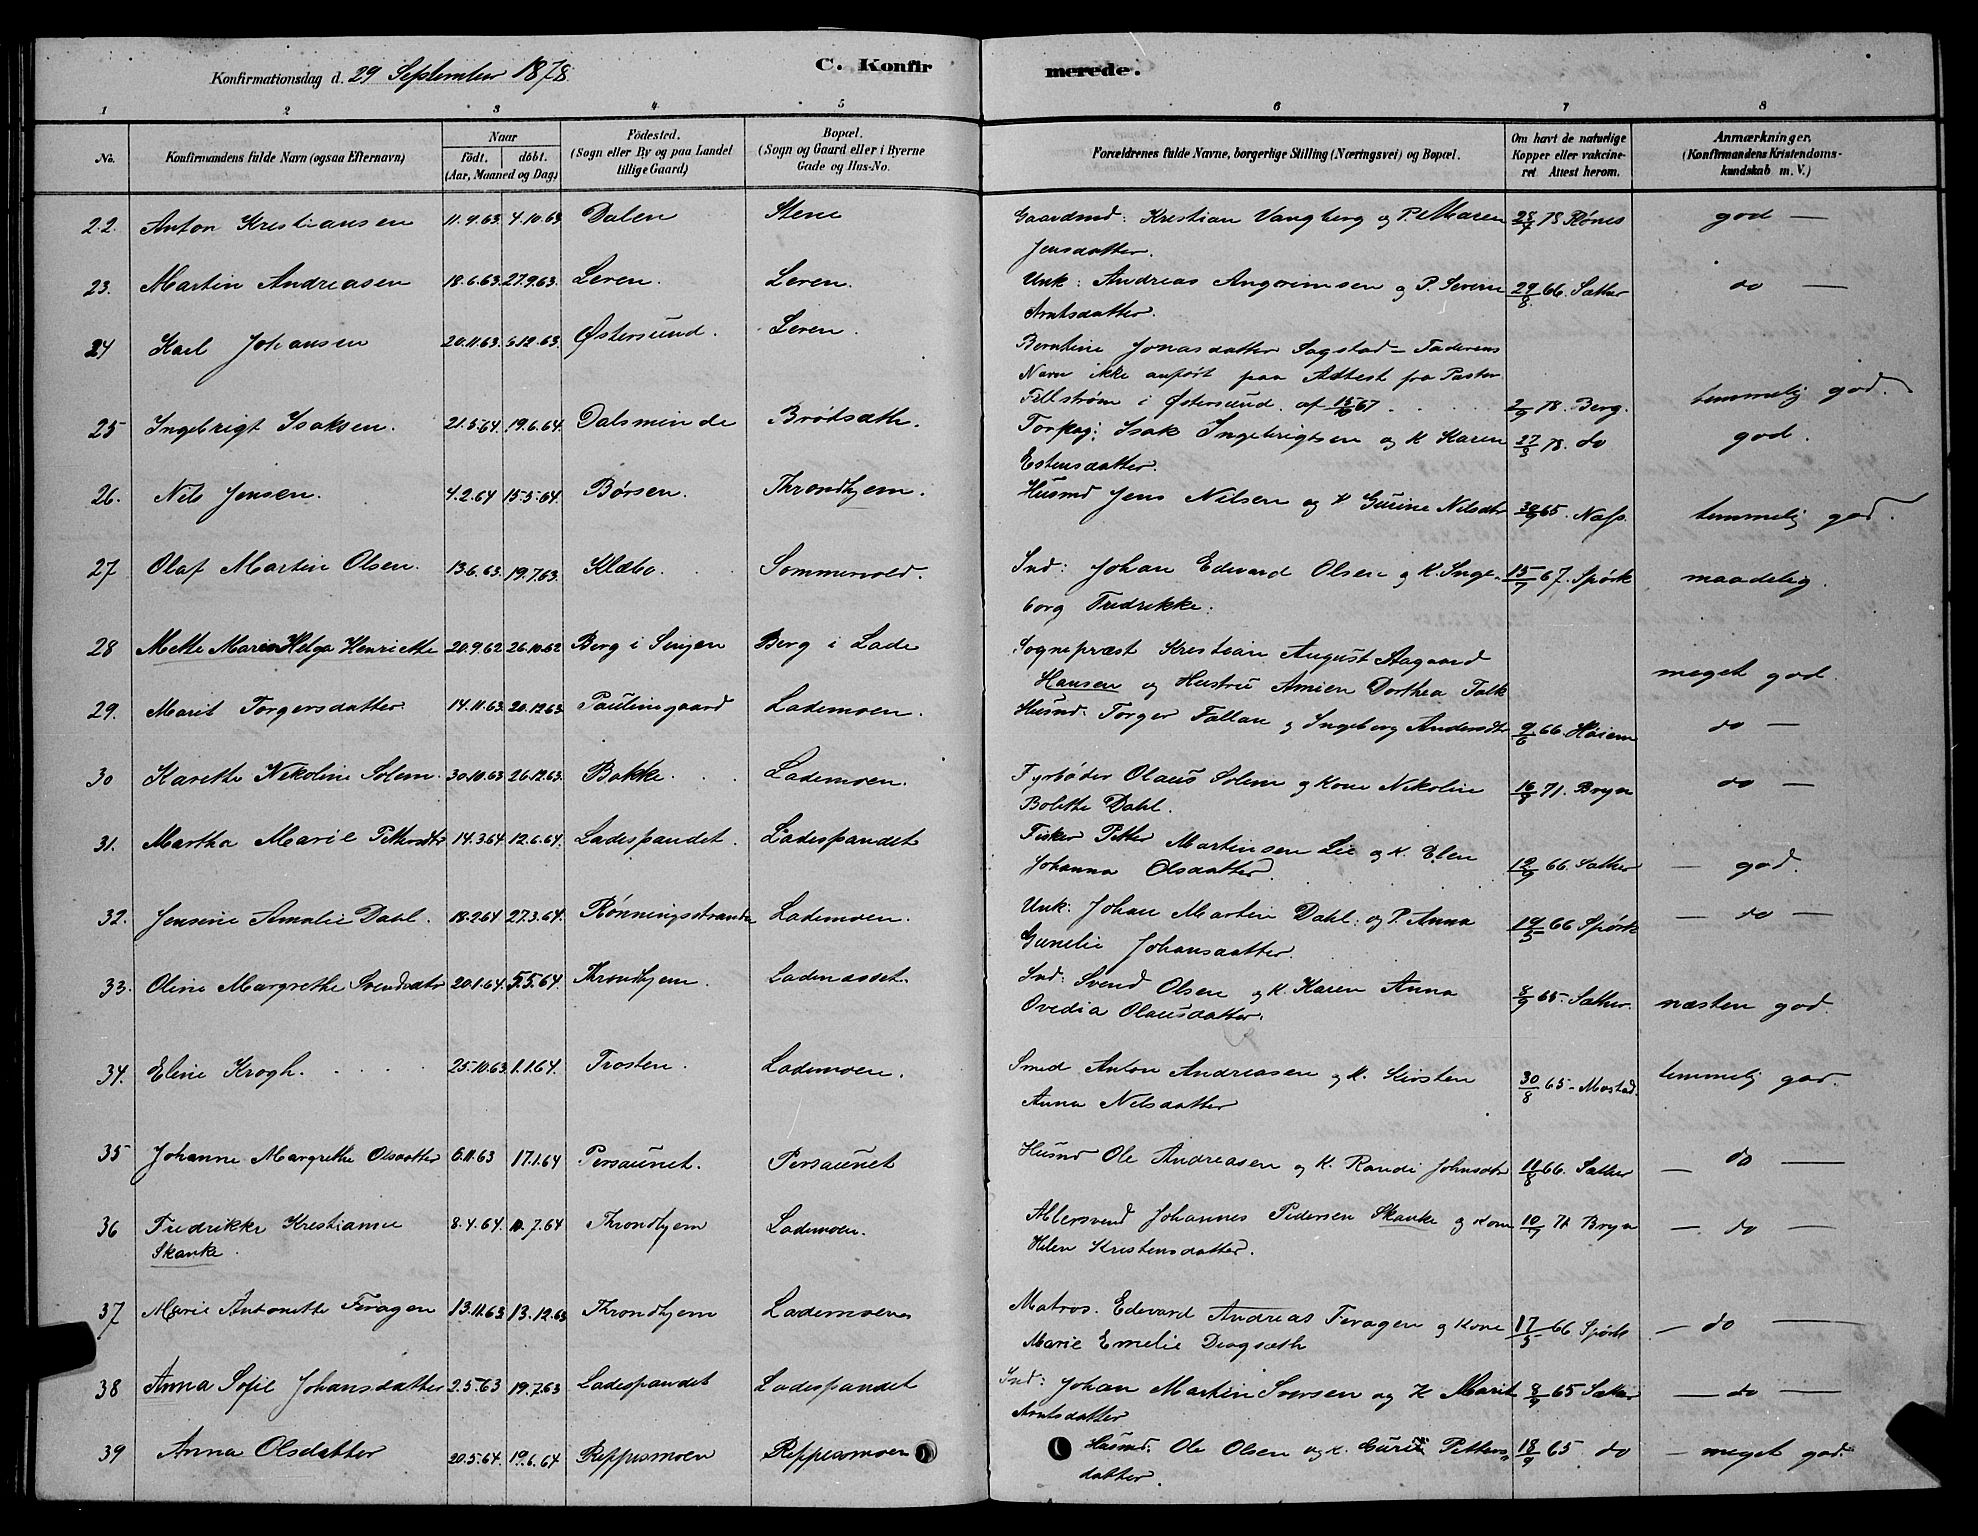 Konfirmationsdag d. 29 September 1878.
C. Konfirmerede.
1 2 3 4 5 6 7 8
No. Konfirmandens fulde Navn (ogsaa Efternavn) Naar födt. döbt. (Aar, Maaned og Dag) Födested. (Sogn eller By og paa Landet tillige Gaard) Bopæl. (Sogn og Gaard eller i Byerne Gade og Hus-No. Forældrenes fulde Navne, borgerlige Stilling (Næringsvei) og Bopæl. Om havt de naturlige Kopper eller vakcineret Attest herom. Anmærkninger. (Konfirmandens Kristendomskundskab m. V.)
22. Anton Kristiansen 11.9.63. 4.10.63 Dalen Stene Gaardmd: Kristian Vangberg og P. Maren 78 Rönes god —
Jensdatter.
23. Martin Andreasen 18.6.63. 27.9.63. Leren. Leren. Unk: Andreas Angrimsen og P. Severine 29/8 66. Sæther do —
Arntsdatter.
24 Karl Johansen 20.11.63. 6.12.63. Østersund. Leren. Berntine Jonasdatter Sagstad — Faderens
Navn ikke anfört paa Attest fra Pastor
Fellström i Østersund. af 67 2/9 78. Berg. temmelig god.
25 Ingebrigt Isaksen. 21.5.64. 19.6.64. Dalsminde Brödsæth. Forpag: Isak Ingebrigtsen og K Karen 78. do god.
Estensdatter.
26. Nils Jensen. 4.2.64 15.5.64. Börsen. Throndhjem. Husmd Jens Nilsen og K Gurine Nilsdtr 65. Næss. temmelig god.
27 Olaf Martin Olsen. 13.6.63. 19.7.63. Klæbo. Sommervold. Ind: Johan Edevard Olsen og K. Inge- 67. Spörk maadelig.
borg Fredrikke.
28 Mette Marie Helga Henriette 20.9.62. 26.10.62 Berg i Senjen Berg i Lade Sognepræst Kristian August Aagaard
Hansen og Hustru Amien Dorthea Falk meget god.
29. Marit Torgersdatter 14.11.63. 20.12.63 Paulinsgaard Lademoen. Husmd: Torger Fallan og Ingeborg Andersdtr 9/6 66. Höiem do —
30 Karethe Nikoline Solem. 30.10.63. 26.12.63. Bakke. Lademoen. Fyrböder Olaus Solem og Kone Nikoline 16/8 71. Bryn do —
Bolette Dahl.
31. Martha Marie Pettersdtr 14.3.64 12.6.64. Ladespandet. Ladespandet Fisker Petter Martinsen Lie og K. Elen 12/9 66. Sæther — god.
Johanna Olsdatter.
32. Jensine Amalie Dahl. 18.2.64 27.3.64. Rönningsstranda Lademoen. Unk: Johan Martin Dahl. og P. Anna 19/5 66 Spörk — do —
Gunelie Johansdatter.
33. Oline Margrethe Svendsdtr 20.1.64. 5.5.64. Throndhjem. Ladenæsset. Ind: Svend Olsen og K. Karen Anna 8/9 65. Sæther. næsten god.
Ovedia Olausdatter.
34. Eline Krogh. 25.10.63. 1.1.64. Frosten. Lademoen. Smed Anton Andreasen og K. Kirsten 30/8 65 - Mostad. temmelig god.
Anna Nilsdatter
35 Johanne Margrethe Olsdatter 6.11.63 17.1.64 Persaunet. Persaunet Husmd Ole Andreasen og K. Randi Johnsdtr 11/8 66. Sæther — do —
36 Fredrikke Kristianne 8.4.64. 10.7.64 Throndhjem Lademoen. Ablersvend Johannes Pedersen Skanke og Kone 10/7 Bryn — do —
Skanke. Helen Kristensdatter.
37 Marie Antonette Feragen 13.11.63 13.12.63 Throndhjem Lademoen Matros. Edevard Andreas Feragen og Kone 17/5 66 Spörk — do —
Marie Emelie Dragsæth
38 Anna Sofie Johansdatter 2.5.63 19.7.63 Ladespandet Ladespandet Ind: Johan Martin Iversen og K Marit 8/9 65 Sæther — do —
Arntsdatter
39 Anna Olsdatter 20.5.64. 19.6.64 Reppesmoen Reppesmoen Husmd. Ole Olsen og K. Guri Petters 18/9 65. do — meget god.
datter.